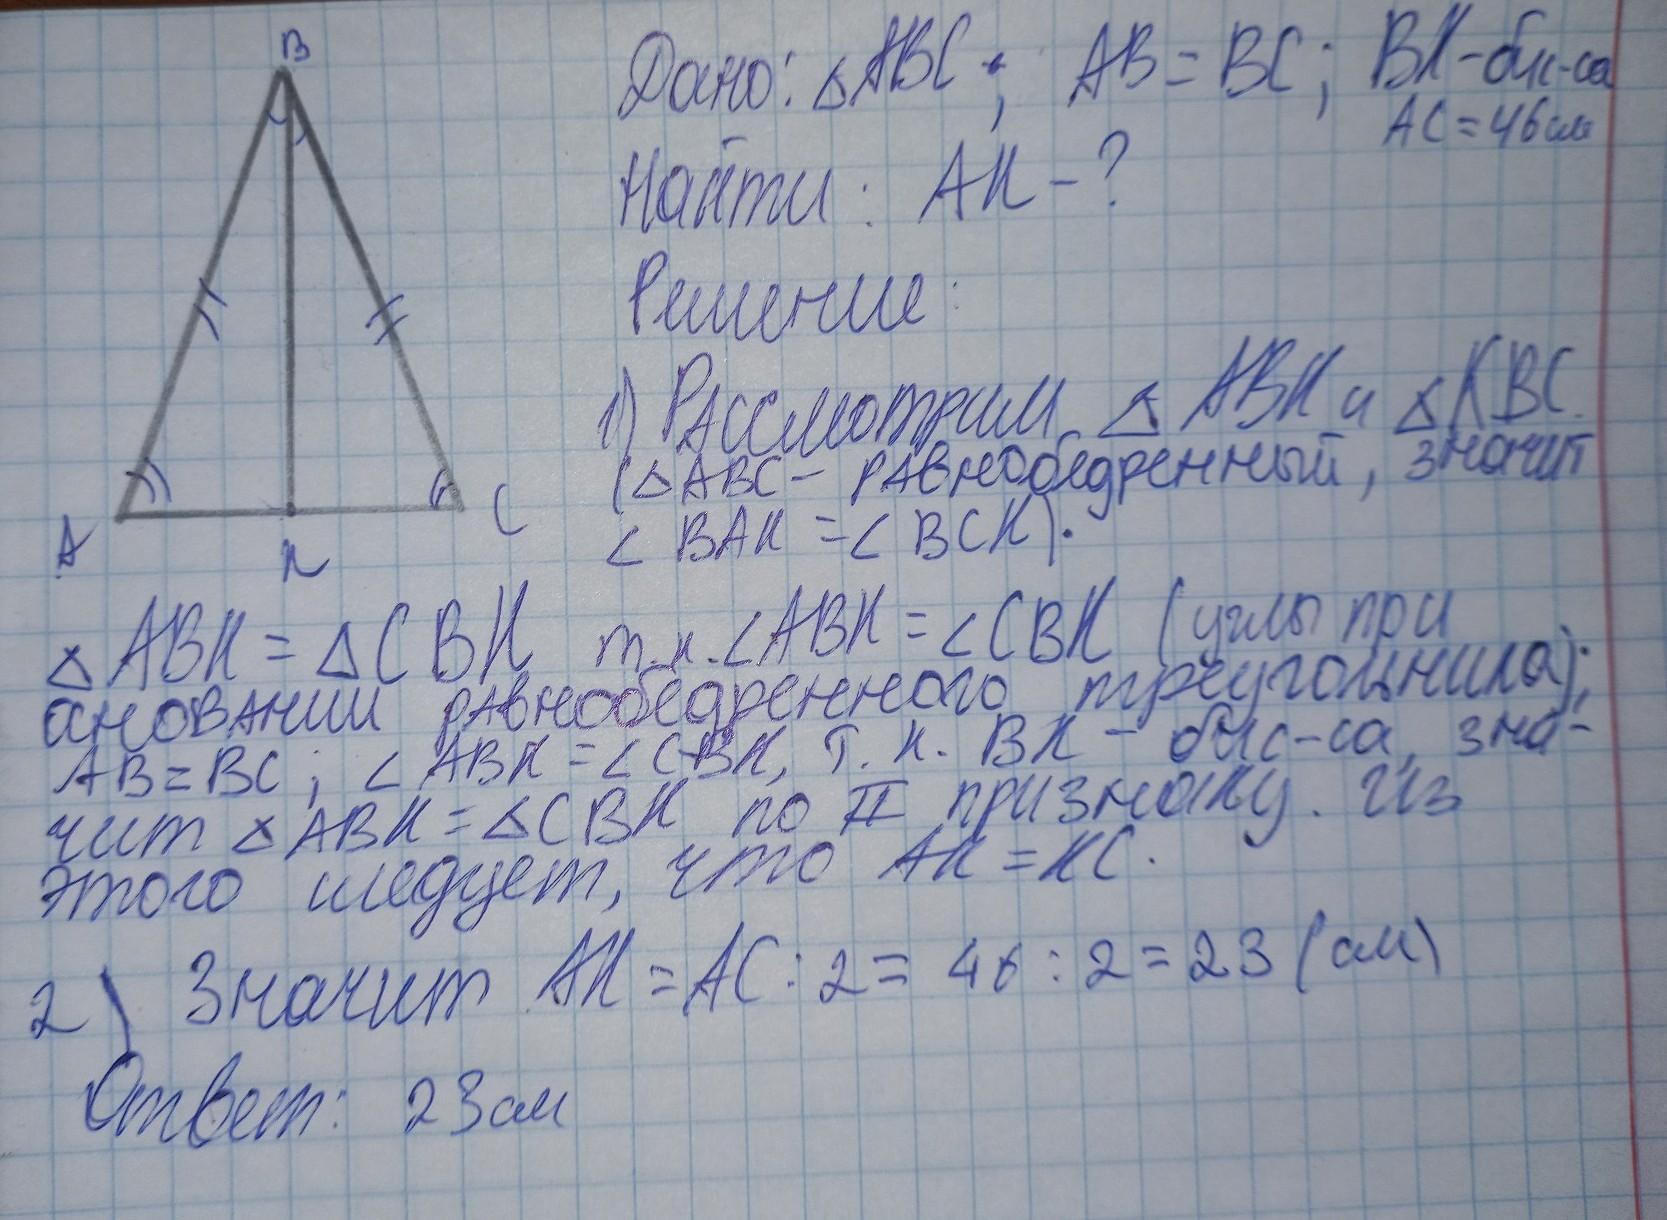 В
Дано: △ABC; AB = BC; BK - бис-са
AC = 46 см
Найти: AK - ?
Решение:
1) Рассмотрим △ABK и △KBC.
(△ABC - равнобедренный, значит
∠BAK = ∠BCK).
A
K
C
△ABK = △CBK т.к. ∠ABK = ∠CBK (углы при
основании равнобедренного треугольника);
AB = BC; ∠ABK = ∠CBK, т.к. BK - бис-са, зна-
чит △ABK = △CBK по II признаку. Из
этого следует, что AK = KC.
2) Значит AK = AC : 2 = 46 : 2 = 23 (см)
Ответ: 23 см